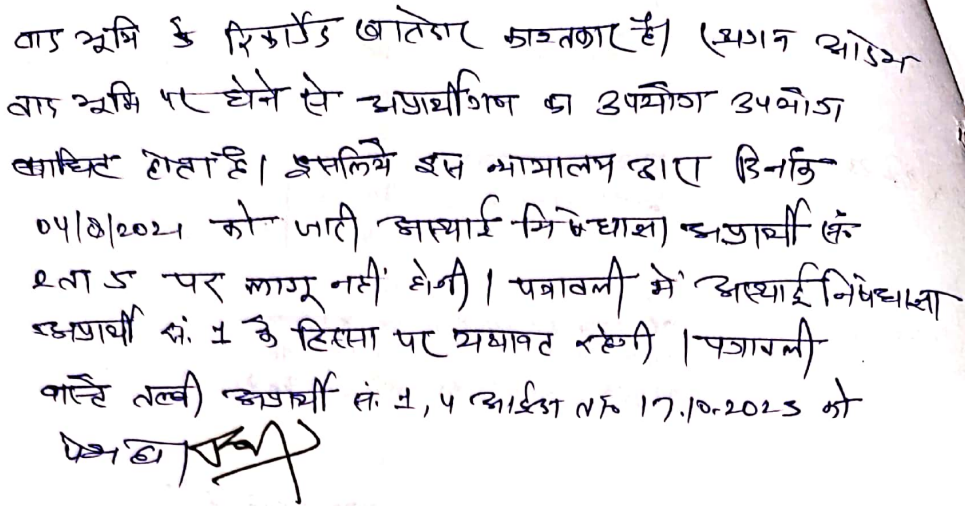 वाद भूमि के रिकार्डेड खातेदार काश्तकार है। स्थगन आदेश
वाद भूमि पर होने से अप्रार्थीगण का उपयोग उपभोग
बाधित होता है। इसलिये इस न्यायालय द्वारा दिनांक
04/8/2021 को जारी अस्थाई निषेधाज्ञा अप्रार्थी सं.
2 ता 5 पर लागू नहीं होगी। पत्रावली में अस्थाई निषेधाज्ञा
अप्रार्थी सं. 1 के हिस्सा पर यथावत रहेगी। पत्रावली
वास्ते तलवी अप्रार्थी सं. 1, 4 आईन्दा ता० 17.10.2025 को
पेश हो।